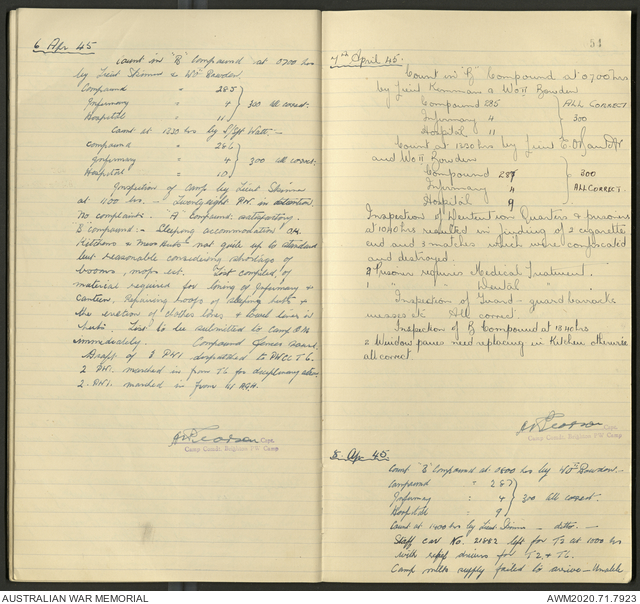 6 Apr 45
Count in "B" Compound at 0700 hrs
by Lieut Skinner & WO Bowden.
Compound " 285
Infirmary " 4 } 300 All correct.
Hospital " 11
Count at 1330 hrs by S/Sgt Watts. —
Compound " 286
Infirmary " 4 } 300 All correct.
Hospital " 10
Inspection of Camp by Lieut Skinner
at 1400 hrs. — Twentyeight PW in detention
No complaints. "A" Compound satisfactory.
"B" compound :- Sleeping accommodation OK.
Kitchens & Mess Huts not quite up to standard
but reasonable considering shortage of
brooms, mops ect. List compiled, of
material required for lining of Infirmary &
canteen. Repairing roofs of sleeping huts &
the erection of clothes lines & towel lines in
huts. List to be submitted to Camp
immediately. Compound Games board.
Draft of 8 PWI. despatched to PWCC T6.
2 PWI. marched in from T6 for disciplinary
2. PWI. marched in from AGH.
Capt
Camp Comdt. PW Camp
51
7th April 45.
Count in "B" Compound at 0700 hrs
by Lieut & WO II Bowden
Compound 285 ALL CORRECT
Infirmary 4 } 300
Hospital 11
Count at 1330 hrs by Lieut
and WO II Bowden
Compound 287 300
Infirmary 4 } ALL CORRECT.
Hospital 9
Inspection of Dentention Quarters & prisoners
at 1040 hrs resulted in finding of 2 cigarette
end and 3 matches which were confiscated
and destroyed.
2 Prisoner requires Medical Treatment.
1 " " Dental "
Inspection of Guard - guard barracks
messes etc All correct.
Inspection of B Compound at hrs
2 Window panes need replacing in Kitchen otherwise
all correct
Capt.
Camp Comdt. PW Camp
8. Apr 45.
Count "B" Compound at 0800 hrs by WO II Bowden. —
Compound " 287
Infirmary " 4 } 300 All correct.
Hospital " 9
Count at 1400 hrs by Lieut Skinner — ditto. —
Staff car No. 21882 left for T2 at 1000 hrs
with drivers for T2 & T6.
Camp milk supply failed to arrive —
AUSTRALIAN WAR MEMORIAL
AWM2020.71.7923